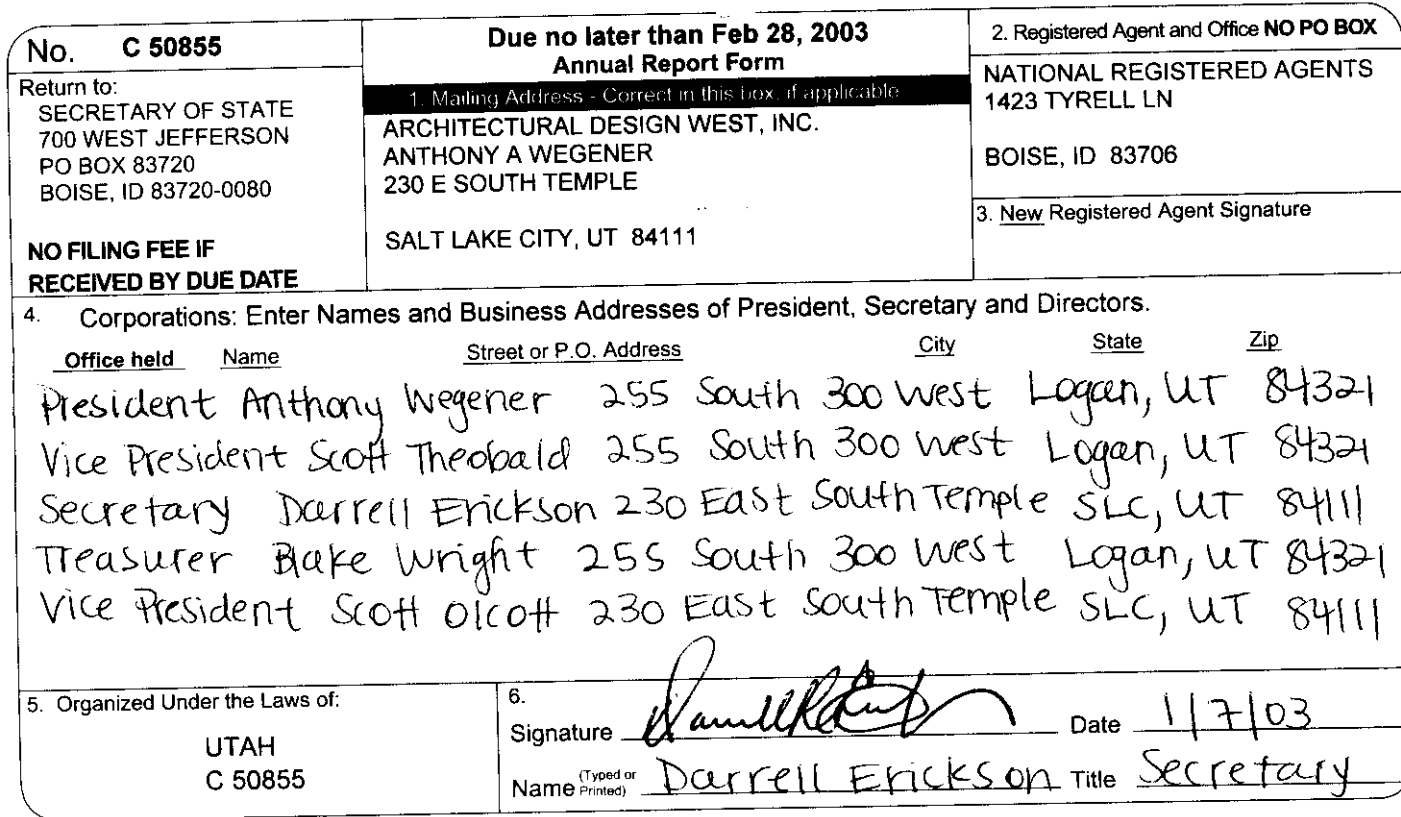 No. C 50855
Return to:
SECRETARY OF STATE
700 WEST JEFFERSON
PO BOX 83720
BOISE, ID 83720-0080
NO FILING FEE IF
RECEIVED BY DUE DATE
Due no later than Feb 28, 2003
Annual Report Form
1. Mailing Address - Correct in this box, if applicable
ARCHITECTURAL DESIGN WEST, INC.
ANTHONY A WEGENER
230 E SOUTH TEMPLE
SALT LAKE CITY, UT 84111
2. Registered Agent and Office NO PO BOX
NATIONAL REGISTERED AGENTS
1423 TYRELL LN
BOISE, ID 83706
3. New Registered Agent Signature
4. Corporations: Enter Names and Business Addresses of President, Secretary and Directors.
Office held Name Street or P.O. Address City State Zip
President Anthony Wegener 255 South 300 West Logan, UT 84321
Vice President Scott Theobald 255 South 300 West Logan, UT 84321
Secretary Darrell Erickson 230 East South Temple SLC, UT 84111
Treasurer Blake Wright 255 South 300 West Logan, UT 84321
Vice President Scott Olcott 230 East South Temple SLC, UT 84111
5. Organized Under the Laws of:
UTAH
C 50855
6.
Signature Date 1/7/03
Name (Typed or Printed) Darrell Erickson Title Secretary